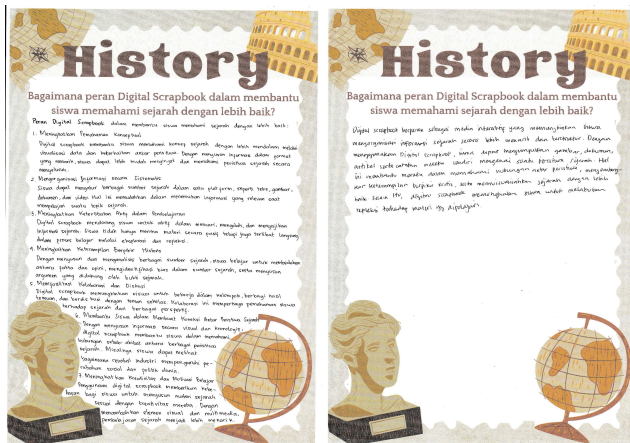 History
Bagaimana peran Digital Scrapbook dalam membantu
siswa memahami sejarah dengan lebih baik?
Peran Digital Scrapbook dalam membantu siswa memahami sejarah dengan lebih baik :
1. Meningkatkan Pemahaman Konseptual
Digital scrapbook membantu siswa memahami konsep sejarah dengan lebih mendalam melalui
visualisasi data dan keterkaitan antar peristiwa. Dengan menyajikan informasi dalam format
yang menarik, siswa dapat lebih mudah mengingat dan memahami peristiwa sejarah secara
menyeluruh.
2. Mengorganisasi Informasi secara Sistematis
Siswa dapat mengatur berbagai sumber sejarah dalam satu platform, seperti teks, gambar,
dokumen, dan video. Hal ini memudahkan dalam menemukan informasi yang relevan saat
mempelajari suatu topik sejarah.
3. Meningkatkan Keterlibatan Aktif dalam Pembelajaran
Digital scrapbook mendorong siswa untuk aktif dalam mencari, mengolah, dan menyajikan
informasi sejarah. Siswa tidak hanya menerima materi secara pasif, tetapi juga terlibat langsung
dalam proses belajar melalui eksplorasi dan refleksi.
4. Meningkatkan Keterampilan Berpikir Historis
Dengan menyusun dan menganalisis berbagai sumber sejarah, siswa belajar untuk membedakan
antara fakta dan opini, mengidentifikasi bias dalam sumber sejarah, serta menyusun
argumen yang didukung oleh bukti sejarah.
5. Memfasilitasi Kolaborasi dan Diskusi
Digital scrapbook memungkinkan siswa untuk bekerja dalam kelompok, berbagi hasil
temuan, dan berdiskusi dengan teman sekelas. Kolaborasi ini memperkaya pemahaman siswa
terhadap sejarah dari berbagai perspektif.
6. Membantu Siswa dalam Membuat Koneksi Antar Peristiwa Sejarah
Dengan menyusun informasi secara visual dan kronologis,
digital scrapbook membantu siswa dalam memahami
hubungan sebab-akibat antara berbagai peristiwa
sejarah. Misalnya, siswa dapat melihat
bagaimana revolusi industri mempengaruhi pe-
rubahan sosial dan politik dunia.
7. Meningkatkan Kreativitas dan Motivasi Belajar
Penggunaan digital scrapbook memberikan kebe-
basan bagi siswa untuk menyusun materi sejarah
sesuai dengan kreativitas mereka. Dengan
menambahkan elemen visual dan multimedia,
pembelajaran sejarah menjadi lebih menarik.
History
Bagaimana peran Digital Scrapbook dalam membantu
siswa memahami sejarah dengan lebih baik?
Digital scrapbook berperan sebagai media interaktif yang memungkinkan siswa
mengorganisasi informasi sejarah secara lebih menarik dan terstruktur. Dengan
menggunakan Digital scrapbook, siswa dapat mengumpulkan gambar, dokumen,
artikel serta catatan mereka sendiri mengenai suatu peristiwa sejarah. Hal
ini membantu mereka dalam memahami hubungan antar peristiwa, mengembang-
kan keterampilan berpikir kritis, serta memvisualisasikan sejarah dengan lebih
baik. Selain itu, digital scrapbook memungkinkan siswa untuk melakukan
refleksi terhadap materi yg dipelajari.